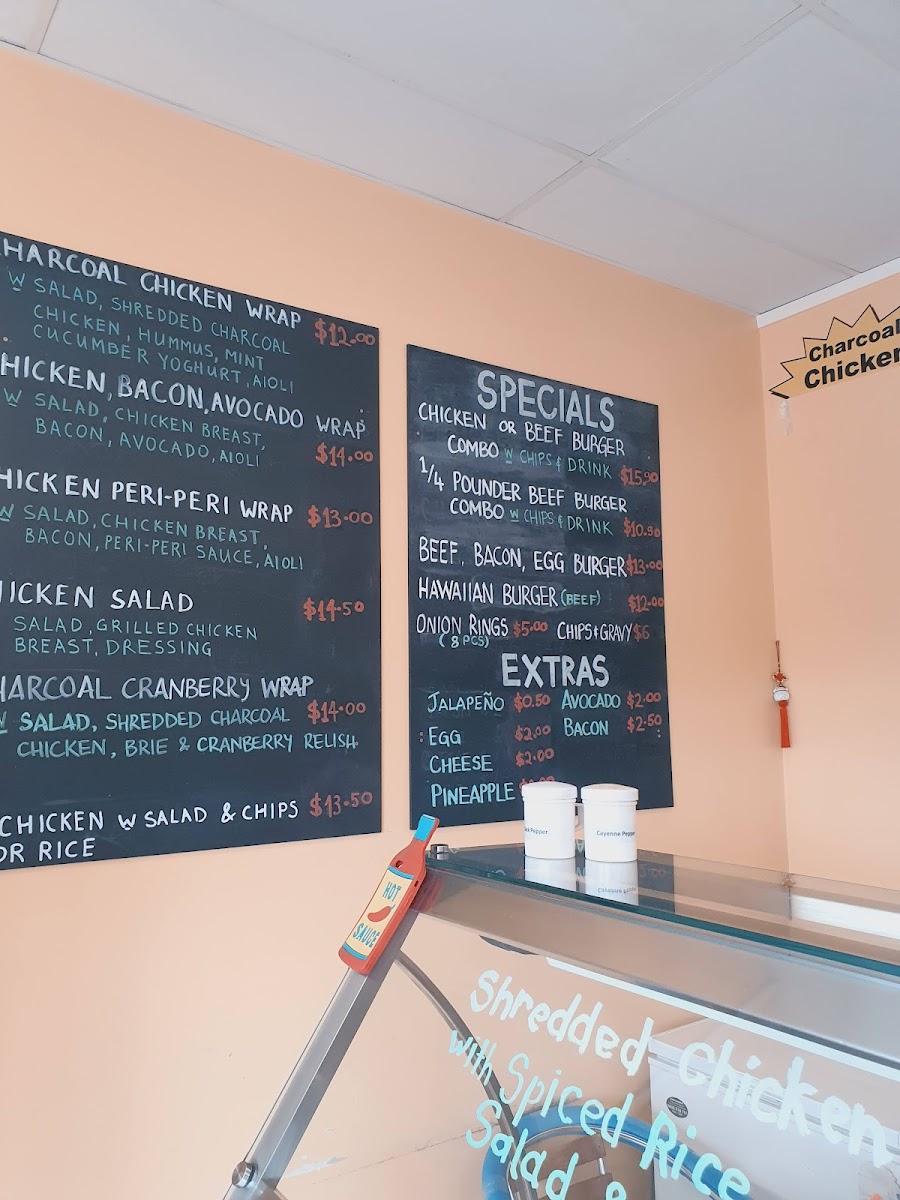 CHARCOAL CHICKEN WRAP $12.00
W SALAD, SHREDDED CHARCOAL
CHICKEN, HUMMUS, MINT
CUCUMBER YOGHURT, AIOLI
CHICKEN, BACON, AVOCADO WRAP
W SALAD, CHICKEN BREAST,
BACON, AVOCADO, AIOLI $14.00
CHICKEN PERI-PERI WRAP $13.00
W SALAD, CHICKEN BREAST,
BACON, PERI-PERI SAUCE, AIOLI
HICKEN SALAD $14.50
SALAD, GRILLED CHICKEN
BREAST, DRESSING
HARCOAL CRANBERRY WRAP
W SALAD, SHREDDED CHARCOAL $14.00
CHICKEN, BRIE & CRANBERRY RELISH
CHICKEN W SALAD & CHIPS $13.50
OR RICE
SPECIALS
CHICKEN OR BEEF BURGER
COMBO W CHIPS & DRINK $15.90
1/4 POUNDER BEEF BURGER
COMBO W CHIPS & DRINK $10.90
BEEF, BACON, EGG BURGER $13.00
HAWAIIAN BURGER (BEEF) $12.00
ONION RINGS $5.00 CHIPS & GRAVY $6
(8 PCS)
EXTRAS
JALAPEÑO $0.50 AVOCADO $2.00
EGG $2.00 BACON $2.50
CHEESE $2.00
PINEAPPLE
Charcoal
Chicken
Pepper
Cayenne Pepper
HOT
SAUCE
Shredded Chicken
with Spiced Rice
Salad &